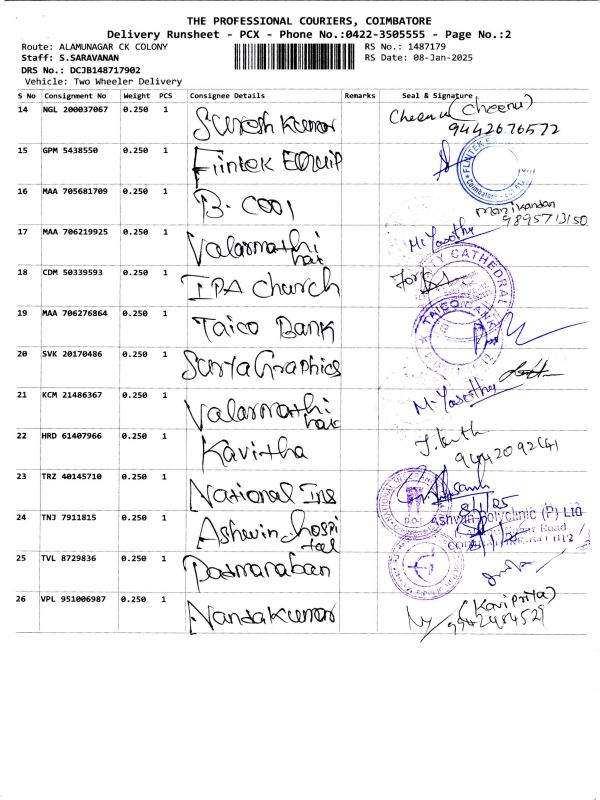 THE PROFESSIONAL COURIERS, COIMBATORE
Delivery Runsheet - PCX - Phone No.:0422-3505555 - Page No.:2
Route: ALAMUNAGAR CK COLONY
RS No.: 1487179
Staff: S.SARAVANAN
RS Date: 08-Jan-2025
DRS No.: DCJB148717902
Vehicle: Two Wheeler Delivery
S No Consignment No Weight PCS Consignee Details Remarks Seal & Signature
14 NGL 200037067 0.250 1 Suresh Kumar Cheenu (Cheenu)
9442676572
15 GPM 5438550 0.250 1 Flintek Equip
16 MAA 705681709 0.250 1 B. COOl Manikandan
9895713150
17 MAA 706219925 0.250 1 Valarmathi
18 CDM 50339593 0.250 1 IPA Church For
CATHEDRAL
19 MAA 706276864 0.250 1 Taico Bank TAICO BANK
20 SVK 20170486 0.250 1 Surya Graphics
21 KCM 21486367 0.250 1 Valarmathi
22 HRD 61407966 0.250 1 Kavitha
23 TRZ 40145710 0.250 1 National Ins
24 TNJ 7911815 0.250 1 Ashwin hospi
tal
Ashwin Polyclinic (P) Ltd
Road
25 TVL 8729836 0.250 1 Padmanaban
26 VPL 951006987 0.250 1 Nandakumar (Kavipriya)
9942484529